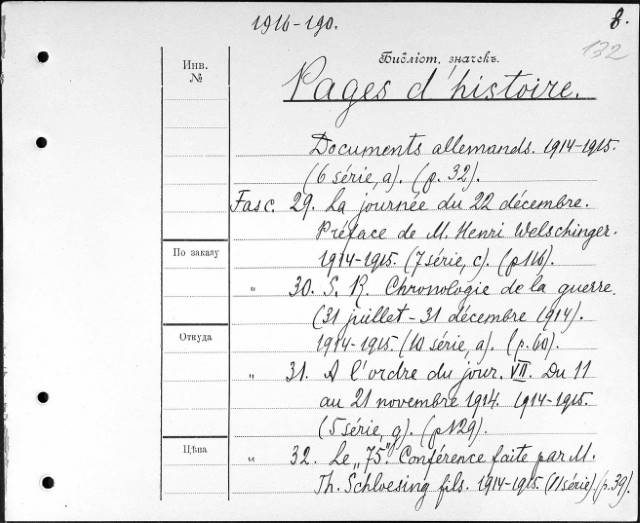 1916-190.
8.
132
Библіот. значекъ.
Инв. №
Pages d'histoire.
Documents allemands. 1914-1915.
(6 série, a). (p. 32).
Fasc. 29. La journée du 22 décembre.
Préface de M. Henri Welschinger.
1914-1915. (7 série, c). (p 116).
По заказу
" 30. S. R. Chronologie de la guerre.
(31 juillet - 31 décembre 1914).
Откуда
1914-1915 (10 série, a). (p. 60).
" 31. A l'ordre du jour. VII. Du 11
au 21 novembre 1914. 1914-1915.
(5 série, g). (p 129).
Цѣна
" 32. Le „75". Conférence faite par M.
Th. Schloesing fils. 1914-1915. (11 série). (p. 39).